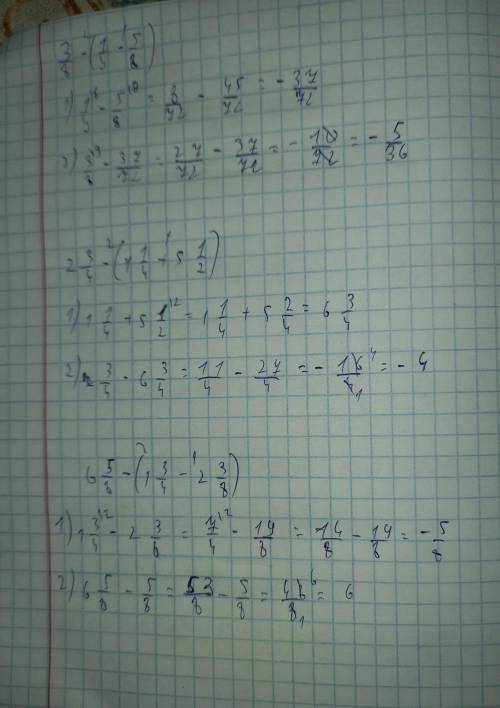 3/8 - (1/9 - 5/8)
1) 1/9 - 5/8 = 8/72 - 45/72 = - 37/72
2) 3/8 - 37/72 = 27/72 - 37/72 = - 10/72 = - 5/36
2 3/4 - (1 1/4 + 5 1/2)
1) 1 1/4 + 5 1/2 = 1 1/4 + 5 2/4 = 6 3/4
2) 2 3/4 - 6 3/4 = 11/4 - 27/4 = - 16/4 = - 4
6 5/8 - (1 3/4 - 2 3/8)
1) 1 3/4 - 2 3/8 = 7/4 - 19/8 = 14/8 - 19/8 = - 5/8
2) 6 5/8 - 5/8 = 53/8 - 5/8 = 48/8 = 6